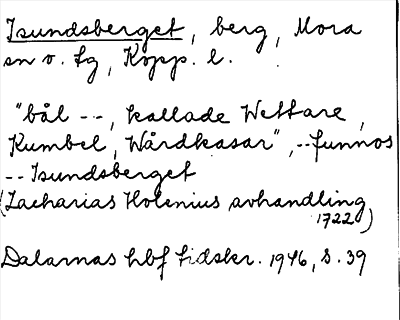 Isundsberget, berg, Mora
sn o. tg, Kopp. l.
"bål --, kallade Wettare,
Kumbel, Wårdkasar", -- funnos
-- Isundsberget
(Zacharias Holenius avhandling
1722)
Dalarnas hbf tidskr. 1946, s. 39